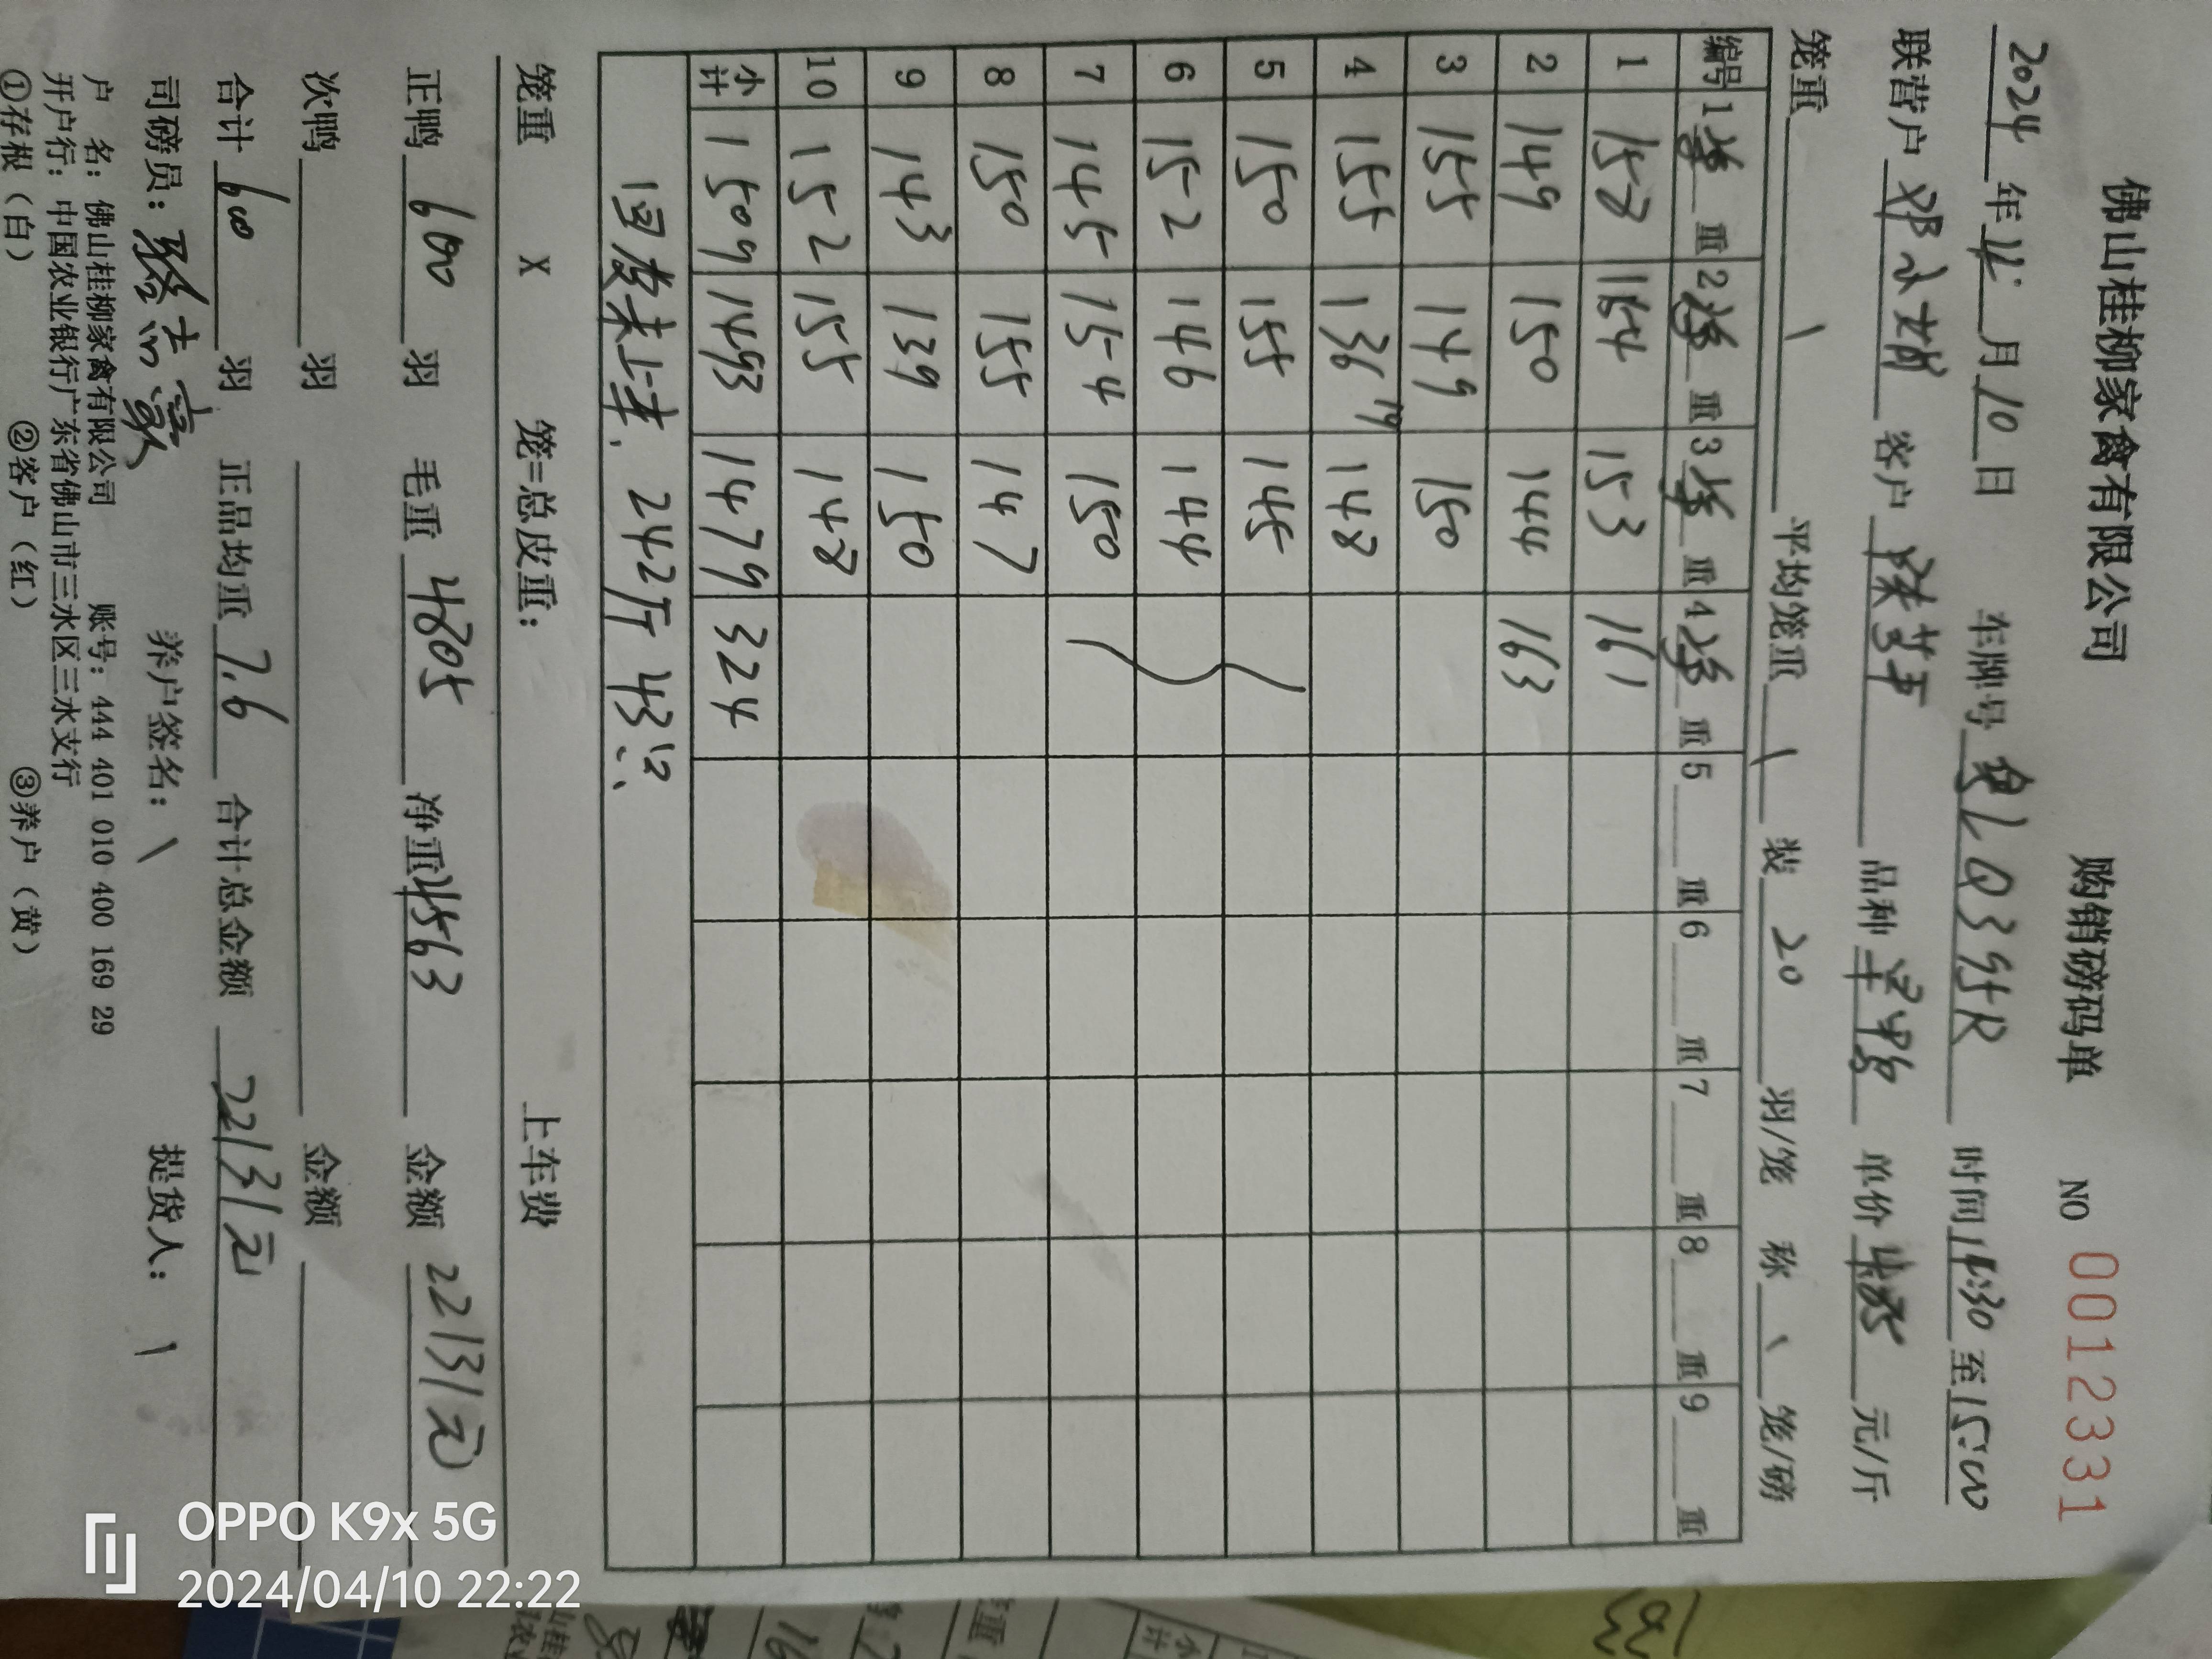 佛山桂柳家禽有限公司 购销磅码单 NO 0012331
2024 年 4 月 10 日 车牌号 粤LQ395R 时间 14:30 至 15:00
联营户 客户 品种 单价 4.85 元/斤
笼重 \ 平均笼重 \ 装 20 羽/笼 称 \ 笼/磅
编号 1 重 2 重 3 重 4 重 5 重 6 重 7 重 8 重 9 重
1 158 164 153 161
2 149 150 144 163
3 155 149 150
4 155 136 19 148
5 150 155 145
6 152 146 144
7 145 154 150
8 150 155 147
9 143 139 150
10 152 155 148
小计 1509 1493 1479 324
回皮未上车、242斤 43只、
笼重 X 笼=总皮重: 上车费
正鸭 600 羽 毛重 4805 净重 4563 金额 22131元
次鸭 羽 金额
合计 600 羽 正品均重 7.6 合计总金额 22131元
司磅员: 养户签名: \ 提货人: \
户 名: 佛山桂柳家禽有限公司 账号: 444 401 010 400 169 29
开户行: 中国农业银行广东省佛山市三水区三水支行
①存根（白） ②客户（红） ③养户（黄）
OPPO K9x 5G
2024/04/10 22:22
153
小计